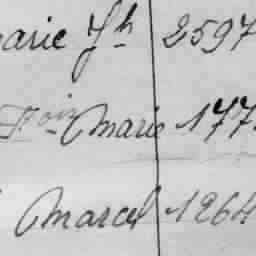 arie Jh 2597
Foix Marie 177
Marcel 1264